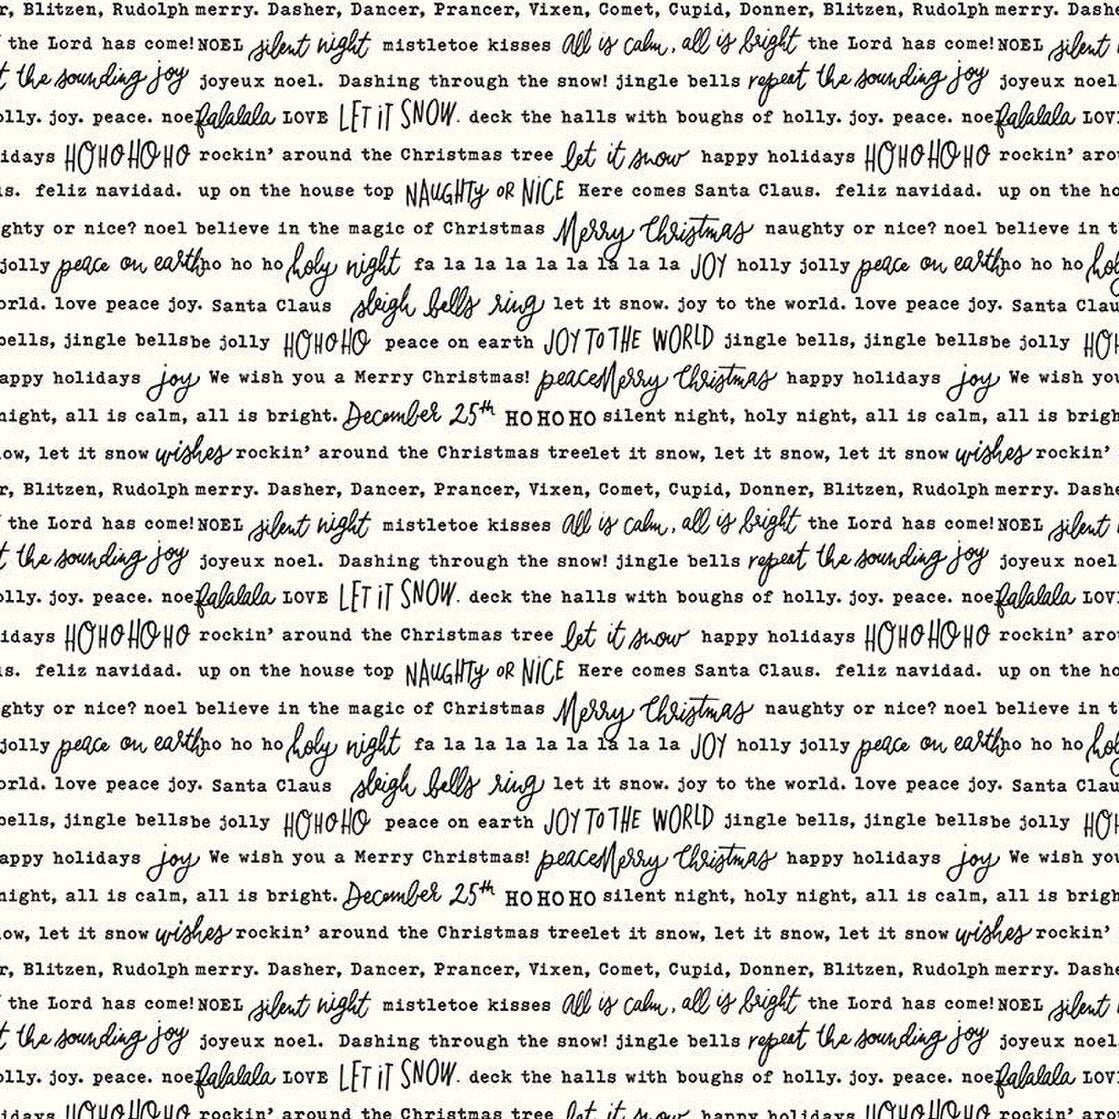 r, Blitzen, Rudolph merry. Dasher, Dancer, Prancer, Vixen, Comet, Cupid, Donner, Blitzen, Rudolph merry. Dashe
the Lord has come! NOEL silent night mistletoe kisses All is calm, all is bright the Lord has come! NOEL silent
t the sounding joy joyeux noel. Dashing through the snow! jingle bells repeat the sounding joy joyeux noel.
olly. joy. peace. noe falalala LOVE LET iT SNOW. deck the halls with boughs of holly. joy. peace. noe falalala LOV
idays HOHOHOHO rockin' around the Christmas tree let it snow happy holidays HOHOHOHO rockin' arou
us. feliz navidad. up on the house top NAUGHTY OR NiCE Here comes Santa Claus. feliz navidad. up on the ho
ghty or nice? noel believe in the magic of Christmas Merry Christmas naughty or nice? noel believe in t
jolly peace on earth ho ho ho holy night fa la la la la la la la la JOY holly jolly peace on earth ho ho ho hol
orld. love peace joy. Santa Claus sleigh bells ring let it snow. joy to the world. love peace joy. Santa Clau
bells, jingle bells be jolly HOHOHO peace on earth JOY TO THE WORLD jingle bells, jingle bells be jolly HOH
appy holidays joy We wish you a Merry Christmas! peace Merry Christmas happy holidays joy We wish you
night, all is calm, all is bright. December 25th HO HO HO silent night, holy night, all is calm, all is brigh
ow, let it snow wishes rockin' around the Christmas tree let it snow, let it snow, let it snow wishes rockin'
r, Blitzen, Rudolph merry. Dasher, Dancer, Prancer, Vixen, Comet, Cupid, Donner, Blitzen, Rudolph merry. Dashe
the Lord has come! NOEL silent night mistletoe kisses All is calm, all is bright the Lord has come! NOEL silent
t the sounding joy joyeux noel. Dashing through the snow! jingle bells repeat the sounding joy joyeux noel.
olly. joy. peace. noe falalala LOVE LET iT SNOW. deck the halls with boughs of holly. joy. peace. noe falalala LOV
idays HOHOHOHO rockin' around the Christmas tree let it snow happy holidays HOHOHOHO rockin' arou
us. feliz navidad. up on the house top NAUGHTY OR NiCE Here comes Santa Claus. feliz navidad. up on the ho
ghty or nice? noel believe in the magic of Christmas Merry Christmas naughty or nice? noel believe in t
jolly peace on earth ho ho ho holy night fa la la la la la la la la JOY holly jolly peace on earth ho ho ho hol
orld. love peace joy. Santa Claus sleigh bells ring let it snow. joy to the world. love peace joy. Santa Clau
bells, jingle bells be jolly HOHOHO peace on earth JOY TO THE WORLD jingle bells, jingle bells be jolly HOH
appy holidays joy We wish you a Merry Christmas! peace Merry Christmas happy holidays joy We wish you
night, all is calm, all is bright. December 25th HO HO HO silent night, holy night, all is calm, all is brigh
ow, let it snow wishes rockin' around the Christmas tree let it snow, let it snow, let it snow wishes rockin'
r, Blitzen, Rudolph merry. Dasher, Dancer, Prancer, Vixen, Comet, Cupid, Donner, Blitzen, Rudolph merry. Dashe
the Lord has come! NOEL silent night mistletoe kisses All is calm, all is bright the Lord has come! NOEL silent
t the sounding joy joyeux noel. Dashing through the snow! jingle bells repeat the sounding joy joyeux noel.
olly. joy. peace. noe falalala LOVE LET iT SNOW. deck the halls with boughs of holly. joy. peace. noe falalala LOV
idays HOHOHOHO rockin' around the Christmas tree let it snow happy holidays HOHOHOHO rockin' arou